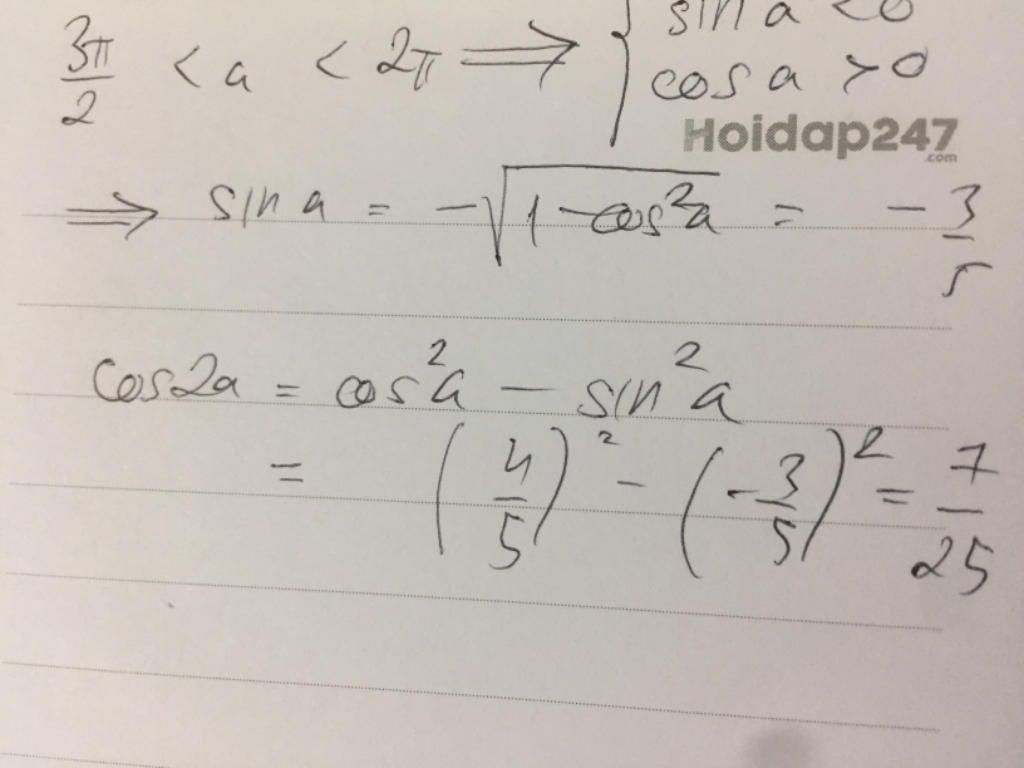 3π/2 < a < 2π ⟹ { sin a < 0
cos a > 0
Hoidap247
.com
⟹ sin a = -√(1 - cos²a) = -3/5
cos2a = cos²a - sin²a
= (4/5)² - (-3/5)² = 7/25